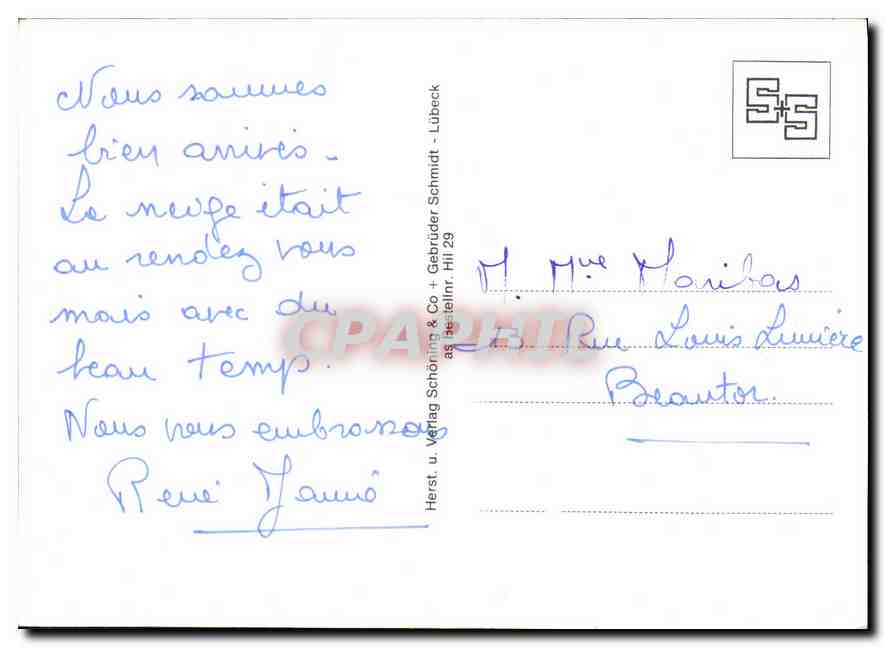 Nous sommes
bien arrivés -
La neige était
au rendez vous
mais avec du
beau temp.
Nous vous embrassons
René
Herst. u. Verlag Schöning & Co + Gebrüder Schmidt - Lübeck
as Bestellnr. Hil 29
S+S
M. Mme Maribas
Rue Louis Lumière
Beautor.
CPAPHIL